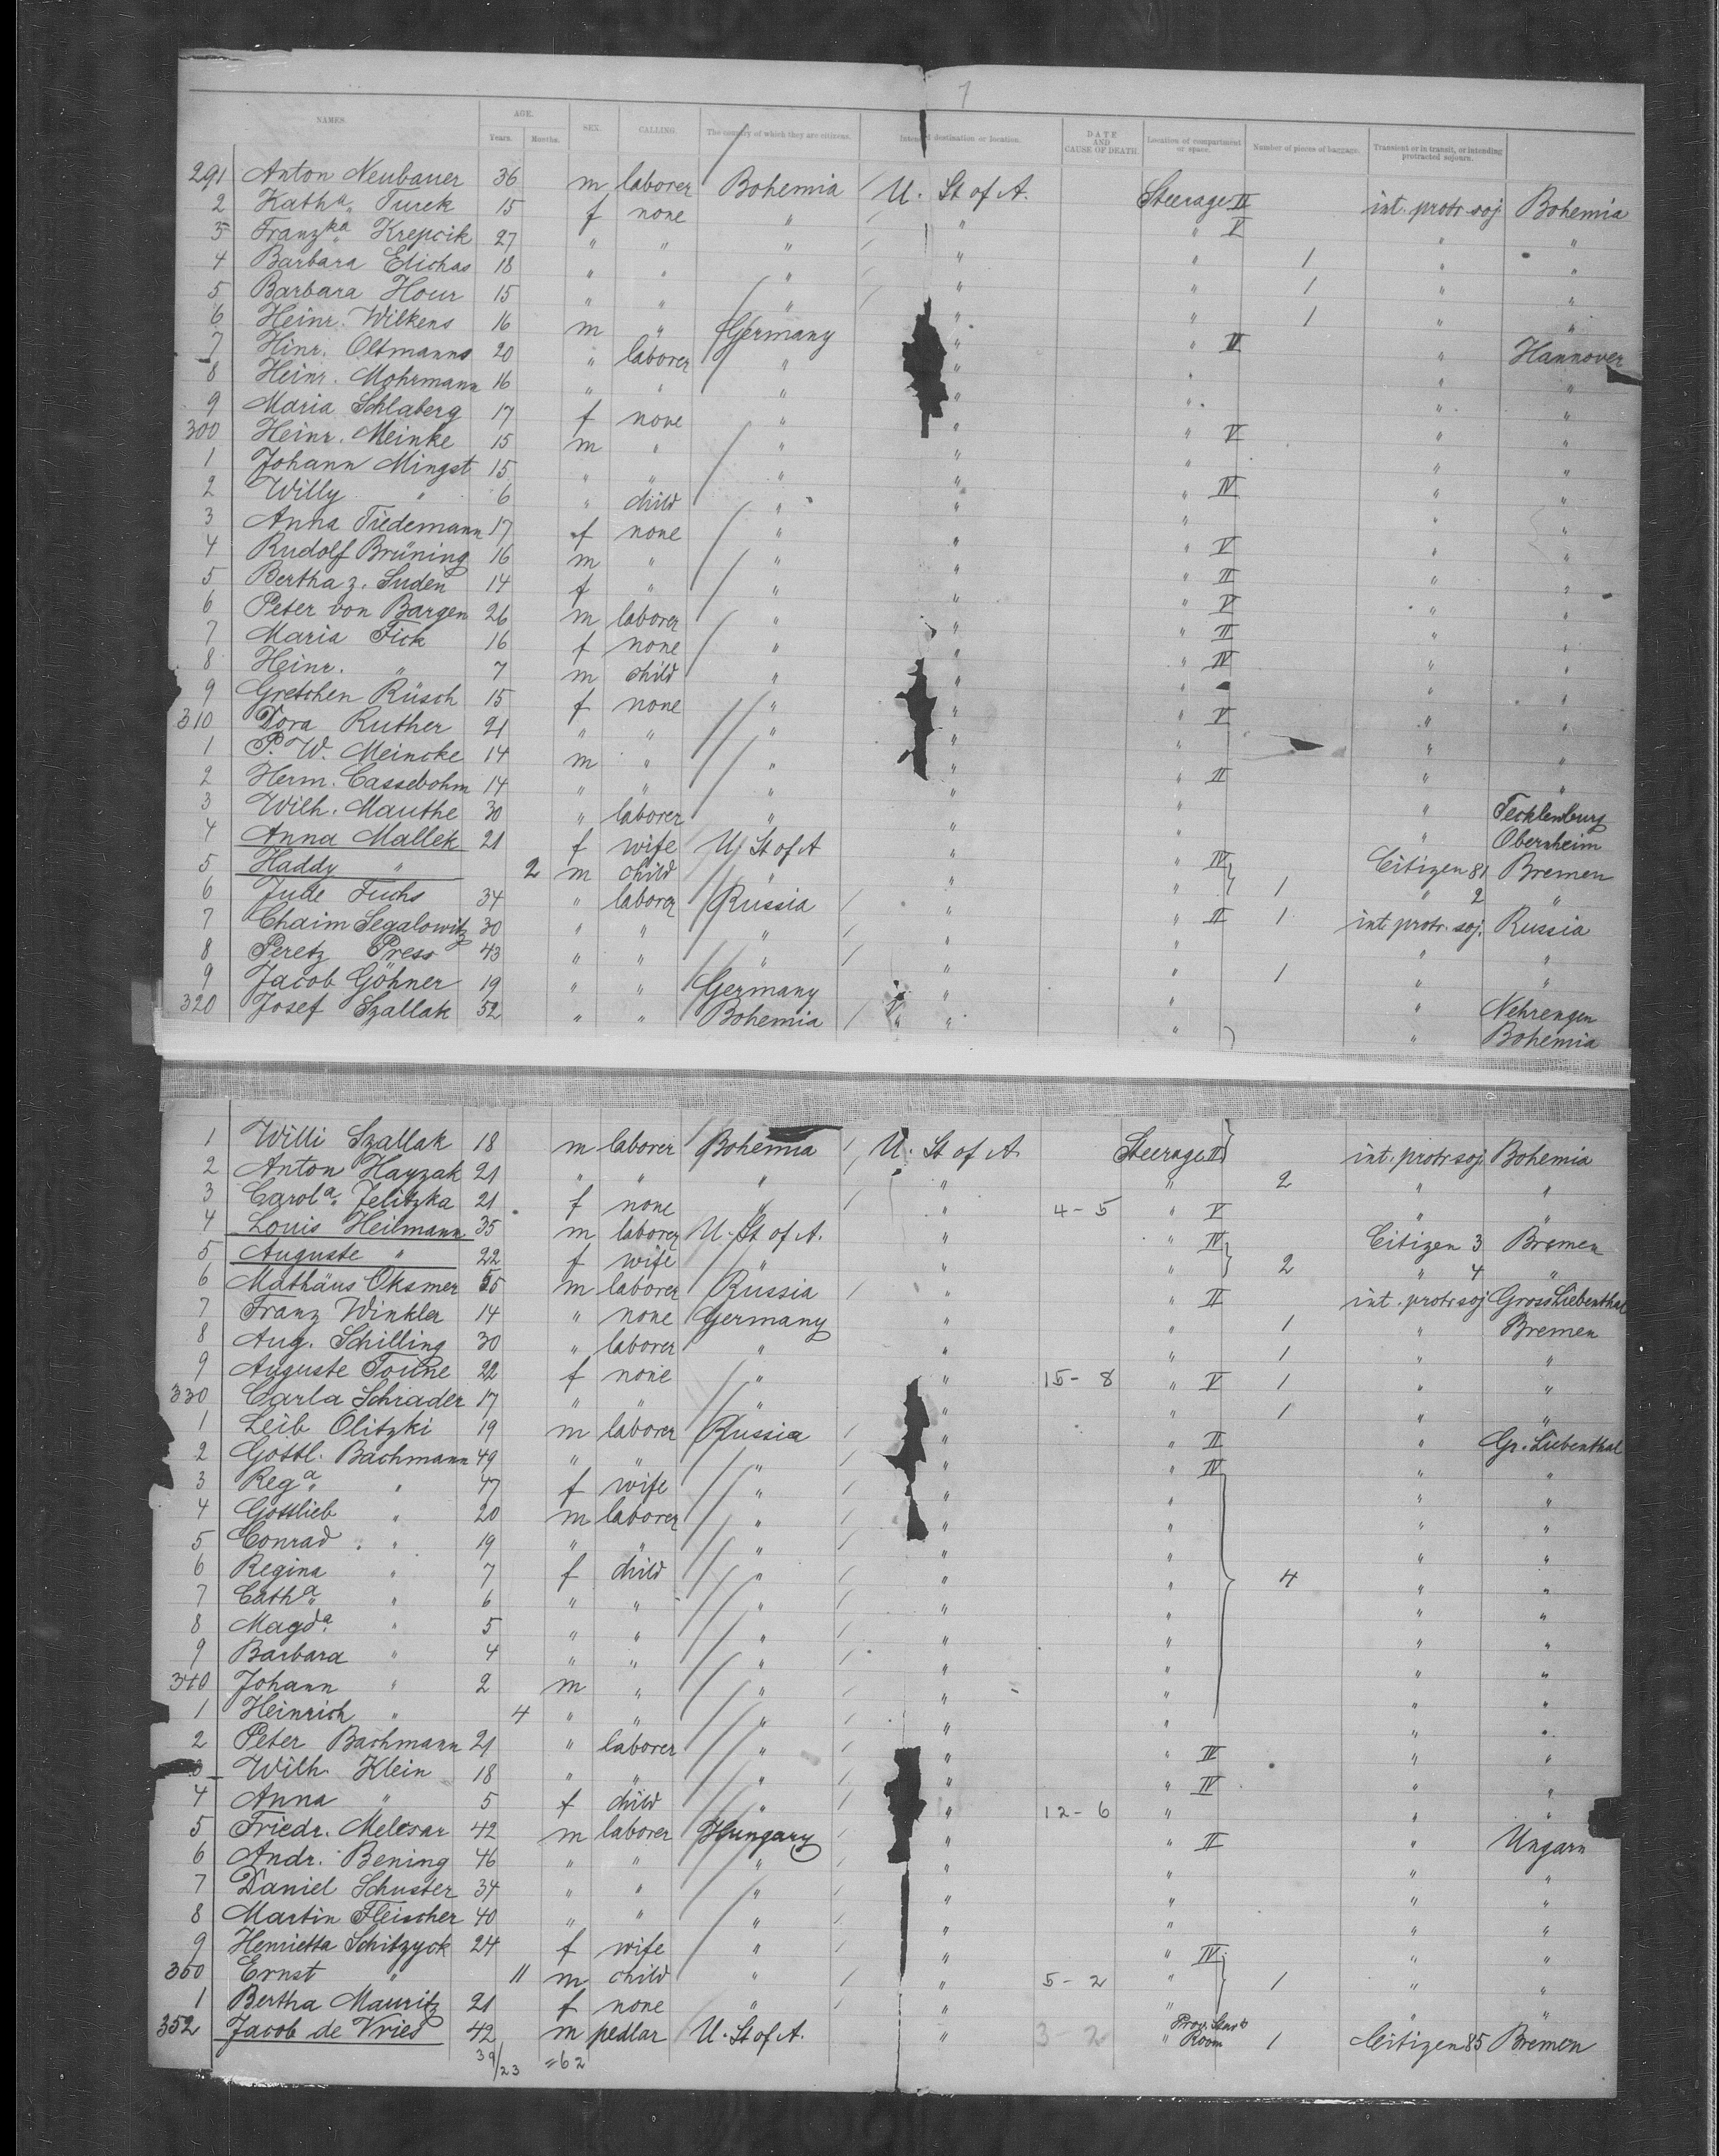 7
NAMES. AGE. SEX. CALLING. The country of which they are citizens. Intended destination or location. DATE AND CAUSE OF DEATH. Location of compartment or space. Number of pieces of baggage. Transient or in transit, or intending protracted sojourn.
Years. Months.
291 Anton Neubauer 36 m laborer Bohemia / U. St of A. Steerage II int. protr. soj Bohemia
2 Katha. Turek 15 f none " / " " V " "
3 Franzka Krepcik 27 " " " / " " 1 " "
4 Barbara Elichas 18 " " " / " " 1 " "
5 Barbara Hour 15 " " " / " " 1 " "
6 Heinr. Wilkens 16 m " Germany " " II " Hannover
7 Hinr. Oltmanns 20 " laborer " " " " "
8 Heinr. Mohrmann 16 " " " " " " "
9 Maria Schlaberg 17 f none " " " V " "
300 Heinr. Meinke 15 m " " " " " "
1 Johann Mingst 15 " " " " " IV " "
2 Willy " 6 " child " " " " "
3 Anna Tiedemann 17 f none " " " V " "
4 Rudolf Brüning 16 m " " " " II " "
5 Bertha z. Suden 14 f " " " " V " "
6 Peter von Bargen 26 m laborer " " " II " "
7 Maria Fick 16 f none " " " IV " "
8 Heinr. " 7 m child " " " " "
9 Gretchen Rüsch 15 f none " " " V " "
310 Dora Ruther 21 " " " " " " "
1 P. W. Meincke 14 m " " " " II " "
2 Herm. Cassebohm 14 " " " " " " Tecklenburg
3 Wilh. Mauthe 30 " laborer " " " " Obernheim
4 Anna Mallek 21 f wife U. St of A " " IV Citizen 81 Bremen
5 Haddy " 2 m child " " " 1 " 2 "
6 Jude Fuchs 34 " laborer Russia / " " II 1 int. protr. soj. Russia
7 Chaim Segalowitz 30 " " " / " " " "
8 Peretz Press 43 " " " / " " 1 " "
9 Jacob Göhner 19 " " Germany " " " Nehrengen
320 Josef Szallak 52 " " Bohemia / " " " Bohemia
1 Willi Szallak 18 m laborer Bohemia / U. St of A Steerage II int. protr soj Bohemia
2 Anton Hayzak 21 " " " / " " 2 " "
3 Carola. Jelitzka 21 f none " / " 4-5 " V " "
4 Louis Heilmann 35 m laborer U. St of A. " " IV Citizen 3 Bremen
5 Auguste " 22 f wife " " " 2 " 4 "
6 Mathäus Oksmer 55 m laborer Russia / " " II int. protr soj Gross Liebenthal
7 Franz Winkler 14 " none Germany " " 1 " Bremen
8 Aug. Schilling 30 " laborer " " " 1 " "
9 Auguste Toune 22 f none " " 15-8 " V 1 " "
330 Carla Schrader 17 " " " " " 1 " "
1 Leib Olitzki 19 m laborer Russia / " " II " Gr. Liebenthal
2 Gottl. Bachmann 49 " " " / " " IV " "
3 Rega. " 47 f wife " / " " " "
4 Gottlieb " 20 m laborer " / " " " "
5 Conrad " 19 " " " / " " " "
6 Regina " 7 f child " / " " 4 " "
7 Catha. " 6 " " " / " " " "
8 Magda. " 5 " " " / " " " "
9 Barbara " 4 " " " / " " " "
340 Johann " 2 m " " / " " " "
1 Heinrich " 4 " " " / " " " "
2 Peter Bachmann 21 " laborer " / " " II " "
3 Wilh. Klein 18 " " " / " " IV " "
4 Anna " 5 f child " / " 12-6 " " "
5 Friedr. Melesar 42 m laborer Hungary / " " II " Ungarn
6 Andr. Bening 46 " " " / " " " "
7 Daniel Schuster 34 " " " / " " " "
8 Martin Fleischer 40 " " " / " " " "
9 Henrietta Schitzyok 24 f wife " / " " IV " "
350 Ernst " 11 m child " / " 5-2 " 1 " "
1 Bertha Mauritz 21 f none " / " " " "
352 Jacob de Vries 42 m pedlar U. St of A. " 3 2 " Room 1 Citizen 85 Bremen
39/23 =62